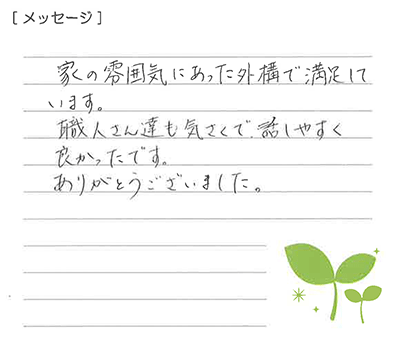 [メッセージ]
家の雰囲気にあった外構で満足して
います。
職人さん達も気さくで、話しやすく
良かったです。
ありがとうございました。